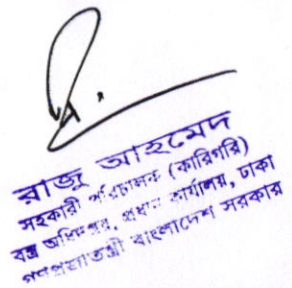 রাজু আহমেদ
সহকারী পরিচালক (কারিগরি)
বস্ত্র অধিদপ্তর, প্রধান কার্যালয়, ঢাকা
গণপ্রজাতন্ত্রী বাংলাদেশ সরকার